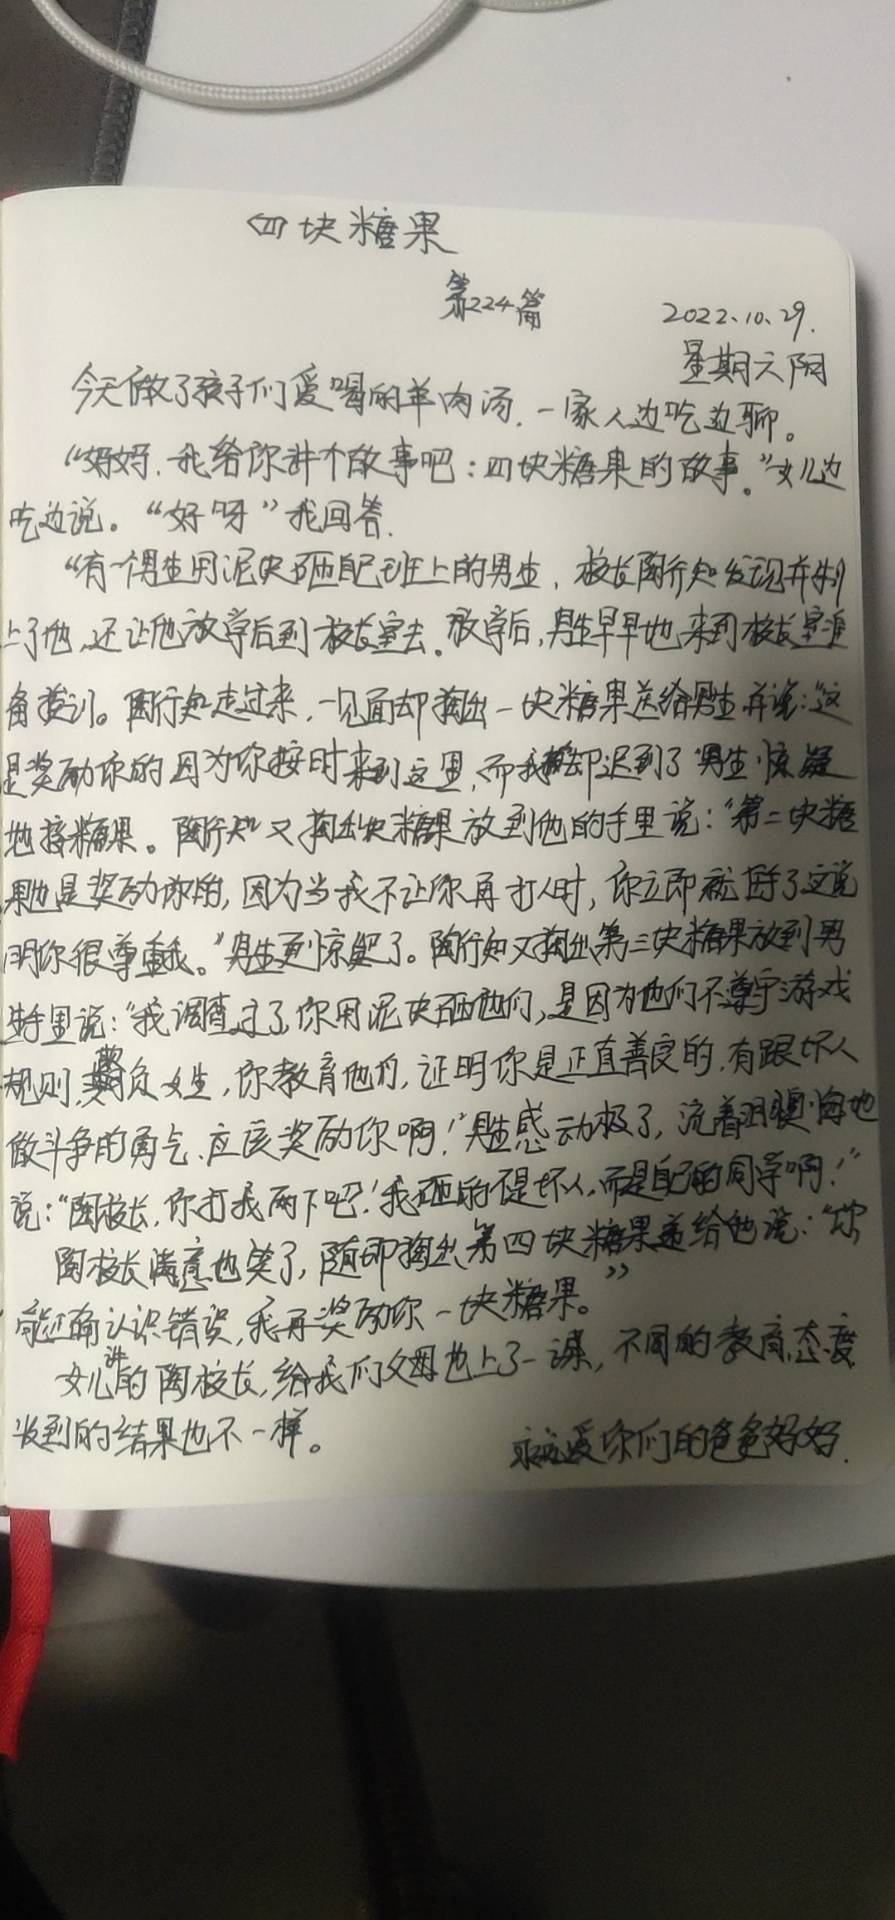 四块糖果
第224篇
2022.10.29.
星期六阴
今天做了孩子们爱喝的羊肉汤.一家人边吃边聊。
“妈妈.我给你讲个故事吧:四块糖果的故事。”女儿边
吃边说。“好呀”我回答.
“有一个男生用泥块砸自己班上的男生,校长陶行知发现并制
止了他,还让他放学后到校长室去。放学后,男生早早地来到校长室准
备挨训。陶行知走过来,一见面却掏出一块糖果送给男生并说:“这
是奖励你的因为你按时来到这里,而我却迟到了”男生惊疑
地接糖果。陶行知又掏出块糖果放到他的手里说:“第二块糖
果也是奖励你的,因为当我不让你再打人时,你立即就住手了这说
明你很尊重我。”男生更惊疑了。陶行知又掏出第三块糖果放到男
生手里说:“我调查过了,你用泥块砸他们,是因为他们不遵守游戏
规则,欺负女生,你教育他们,证明你是正直善良的,有跟坏人
做斗争的勇气.应该奖励你啊!”男生感动极了,流着泪懊悔地
说:“陶校长,你打我两下吧!我砸的不是坏人,而是自己的同学啊!”
陶校长满意地笑了,随即掏出第四块糖果递给他说:“你
能正确认识错误,我再奖励你一块糖果。”
女儿讲的陶校长,给我们父母也上了一课,不同的教育态度
收到的结果也不一样。
永远爱你们的爸爸妈妈.